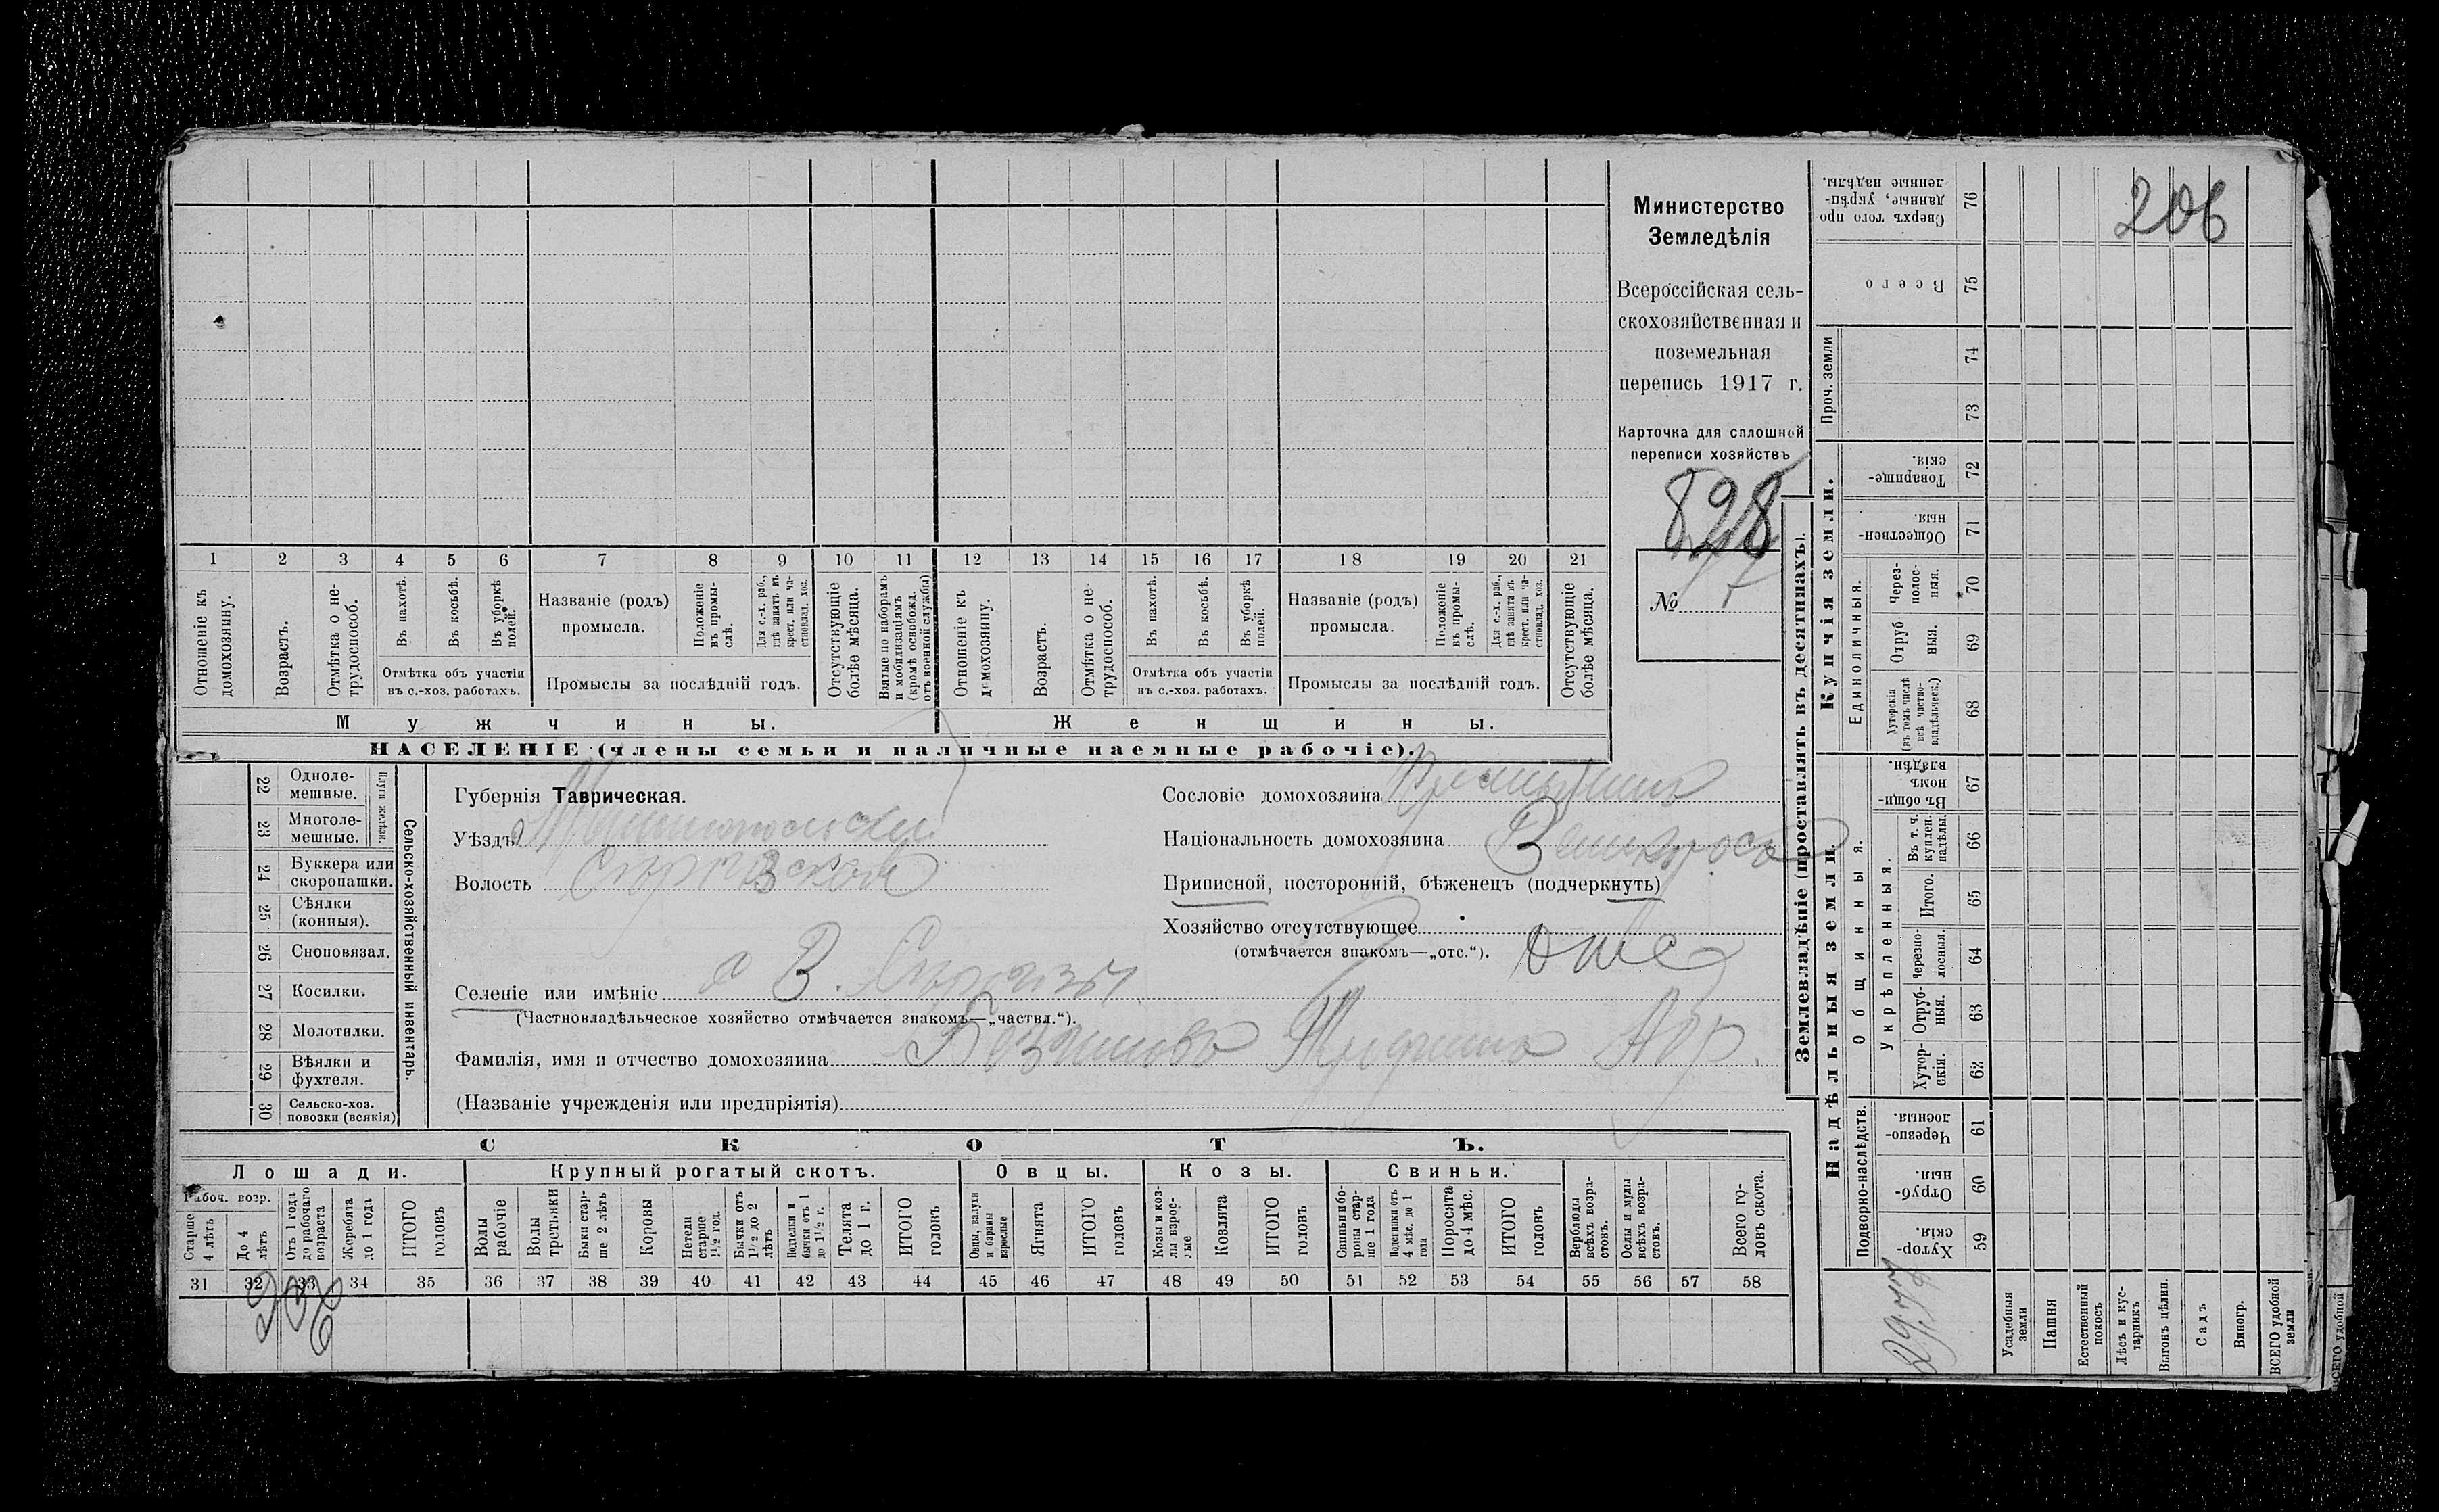 206
Министерство
Земледѣлія
Всероссійская сель-
скохозяйственная и
поземельная
перепись 1917 г.
Карточка для сплошной
переписи хозяйствъ
828
№ 7
1 2 3 4 5 6 7 8 9 10 11 12 13 14 15 16 17 18 19 20 21
Отношеніе къ домохозяину.
Возрастъ.
Отмѣтка о не-трудоспособ.
Въ пахотѣ.
Въ косьбѣ.
Въ уборкѣ полей.
Отмѣтка объ участіи
въ с.-хоз. работахъ.
Названіе (родъ)
промысла.
Положеніе въ промы-слѣ.
Для с.-х. раб., гдѣ занятъ въ крест. или ча-стновлад. хоз.
Промыслы за послѣдній годъ.
Отсутствующіе болѣе мѣсяца.
Взятые по наборамъ и мобилизаціямъ (кромѣ освобожд. отъ военной службы)
Отношеніе къ домохозяину.
Возрастъ.
Отмѣтка о не-трудоспособ.
Въ пахотѣ.
Въ косьбѣ.
Въ уборкѣ полей.
Отмѣтка объ участіи
въ с.-хоз. работахъ.
Названіе (родъ)
промысла.
Положеніе въ промы-слѣ.
Для с.-х. раб., гдѣ занята въ крест. или ча-стновлад. хоз.
Промыслы за послѣдній годъ.
Отсутствующіе болѣе мѣсяца.
Мужчины.
Женщины.
НАСЕЛЕНІЕ (члены семьи и наличные наемные рабочіе).
22 Одноле-мешные.
23 Многоле-мешные.
Плуги желѣзн.
24 Буккера или скоропашки.
25 Сѣялки (конныя).
26 Сноповязал.
27 Косилки.
28 Молотилки.
29 Вѣялки и фухтеля.
30 Сельско-хоз. повозки (всякія)
Сельско-хозяйственный инвентарь.
Губернія Таврическая.
Уѣздъ
Волость
Селеніе или имѣніе с В.
(Частновладѣльческое хозяйство отмѣчается знакомъ—„частвл.“).
Фамилія, имя и отчество домохозяина
(Названіе учрежденія или предпріятія)
Сословіе домохозяина
Національность домохозяина Великоросъ
Приписной, посторонній, бѣженецъ (подчеркнуть)
Хозяйство отсутствующее отс
(отмѣчается знакомъ—„отс.“).
СКОТЪ.
Лошади. Крупный рогатый скотъ. Овцы. Козы. Свиньи.
Рабоч. возр.
Старше 4 лѣтъ
До 4 лѣтъ
Отъ 1 года до рабочаго возраста
Жеребята до 1 года
ИТОГО головъ
Волы рабочіе
Волы третьяки
Быки стар-ше 2 лѣтъ
Коровы
Нетели старше 1½ год.
Бычки отъ 1½ до 2 лѣтъ
Подтелки и бычки отъ 1 до 1½ г.
Телята до 1 г.
ИТОГО головъ
Овцы, валухи и бараны взрослые
Ягнята
ИТОГО головъ
Козы и коз-лы взрос-лые
Козлята
ИТОГО головъ
Свиньи и бо-ровы стар-ше 1 года
Подсвинки отъ 4 мѣс. до 1 года
Поросята до 4 мѣс.
ИТОГО головъ
Верблюды всѣхъ возра-стовъ.
Ослы и мулы всѣхъ возра-стовъ.
Всего го-ловъ скота.
31 32 33 34 35 36 37 38 39 40 41 42 43 44 45 46 47 48 49 50 51 52 53 54 55 56 57 58
Землевладѣніе (проставлять въ десятинахъ).
Сверхъ того про-данные, укрѣп-ленные надѣлы. 76
Всего 75
Проч. земли
74
73
Купчія земли.
Товарище-скія. 72
Обществен-ныя. 71
Единоличныя.
Через-полос-ныя. 70
Отруб-ныя. 69
Хуторскія (въ томъ числѣ всѣ частно-владѣльческ.) 68
Надѣльныя земли.
Въ общин-номъ владѣн. 67
Общинныя.
Укрѣпленныя.
Въ т. ч. куплен. надѣлы. 66
Итого. 65
Черезпо-лосныя. 64
Отруб-ныя. 63
Хутор-скія. 62
Подворно-наслѣдств.
Черезпо-лосныя. 61
Отруб-ныя. 60
Хутор-скія. 59
Усадебныя земли
Пашня
Естественный покосъ
Лѣсъ и кус-тарникъ
Выгонъ цѣлин.
Садъ
Виногр.
ВСЕГО удобной земли